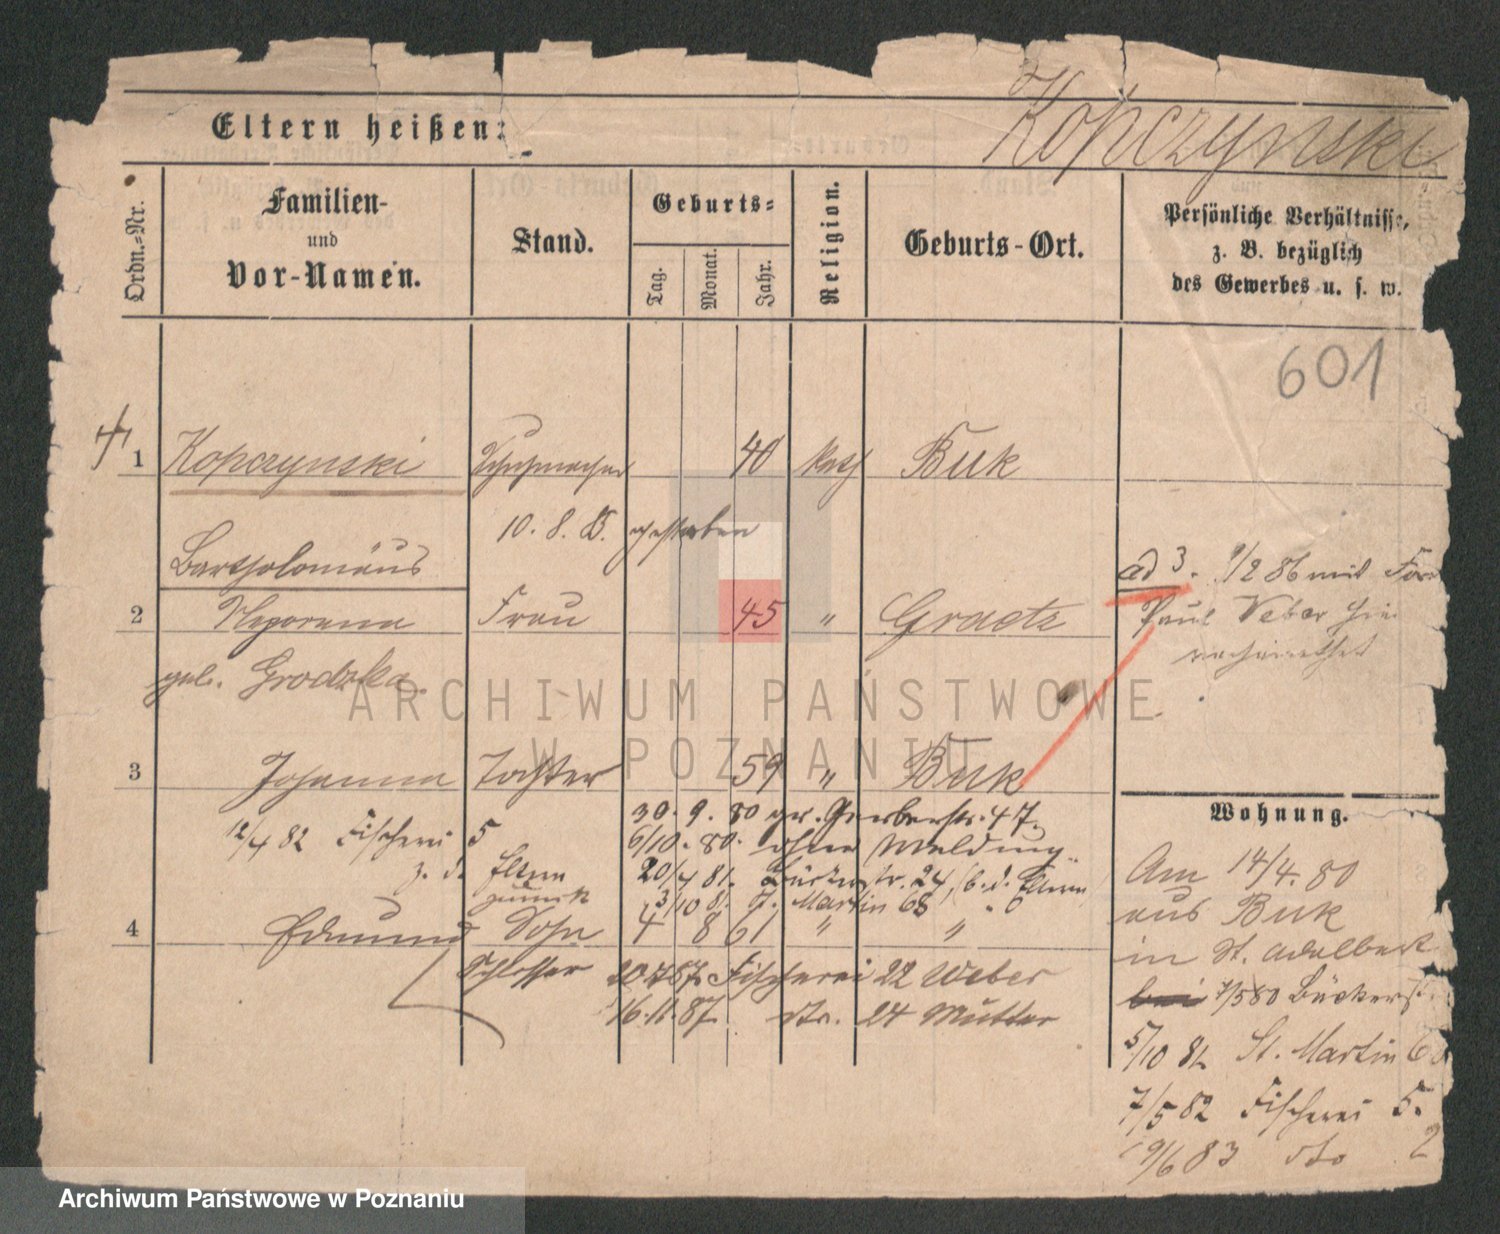 Kopczynski
Eltern heißen:
Ordn.-Nr.
Familien-
und
Vor-Namen.
Stand.
Geburts-
Tag.
Monat.
Jahr.
Religion.
Geburts-Ort.
Persönliche Verhältnisse,
z. B. bezüglich
des Gewerbes u. s. w.
601
1 Kopczynski Schuhmacher 40 kath Buk
10. 8. 85. gestorben
Bartholomäus
2 Nepomena Frau 45 " Graetz
geb. Grodzka.
ad 3. 9/2 86 mit
Paul Weber hie
verheirathet
3 Johanna Tochter 59 " Buk
12/4 82 Fischerei 5
z. d. Eltern
zurück
30. 9. 80 gr. Gerberstr. 47.
6/10. 80. ohne Meldung
20/4 81. Bäckerstr. 24, (b. d. Eltern)
3/10 81. St. Martin 68
4 Edmund Sohn 4 8 61 " "
Schlosser 20.7.87. Fischerei 22 Weber
16.11.87. dto. 24 Mutter
Wohnung.
Am 14/4. 80
aus Buk
in St. Adalbert
bei 7/5 80 Bäckerst
5/10 81. St. Martin 6
7/5 82 Fischerei 5.
19/6 83 dto 2
ARCHIWUM PAŃSTWOWE
W POZNANIU
Archiwum Państwowe w Poznaniu